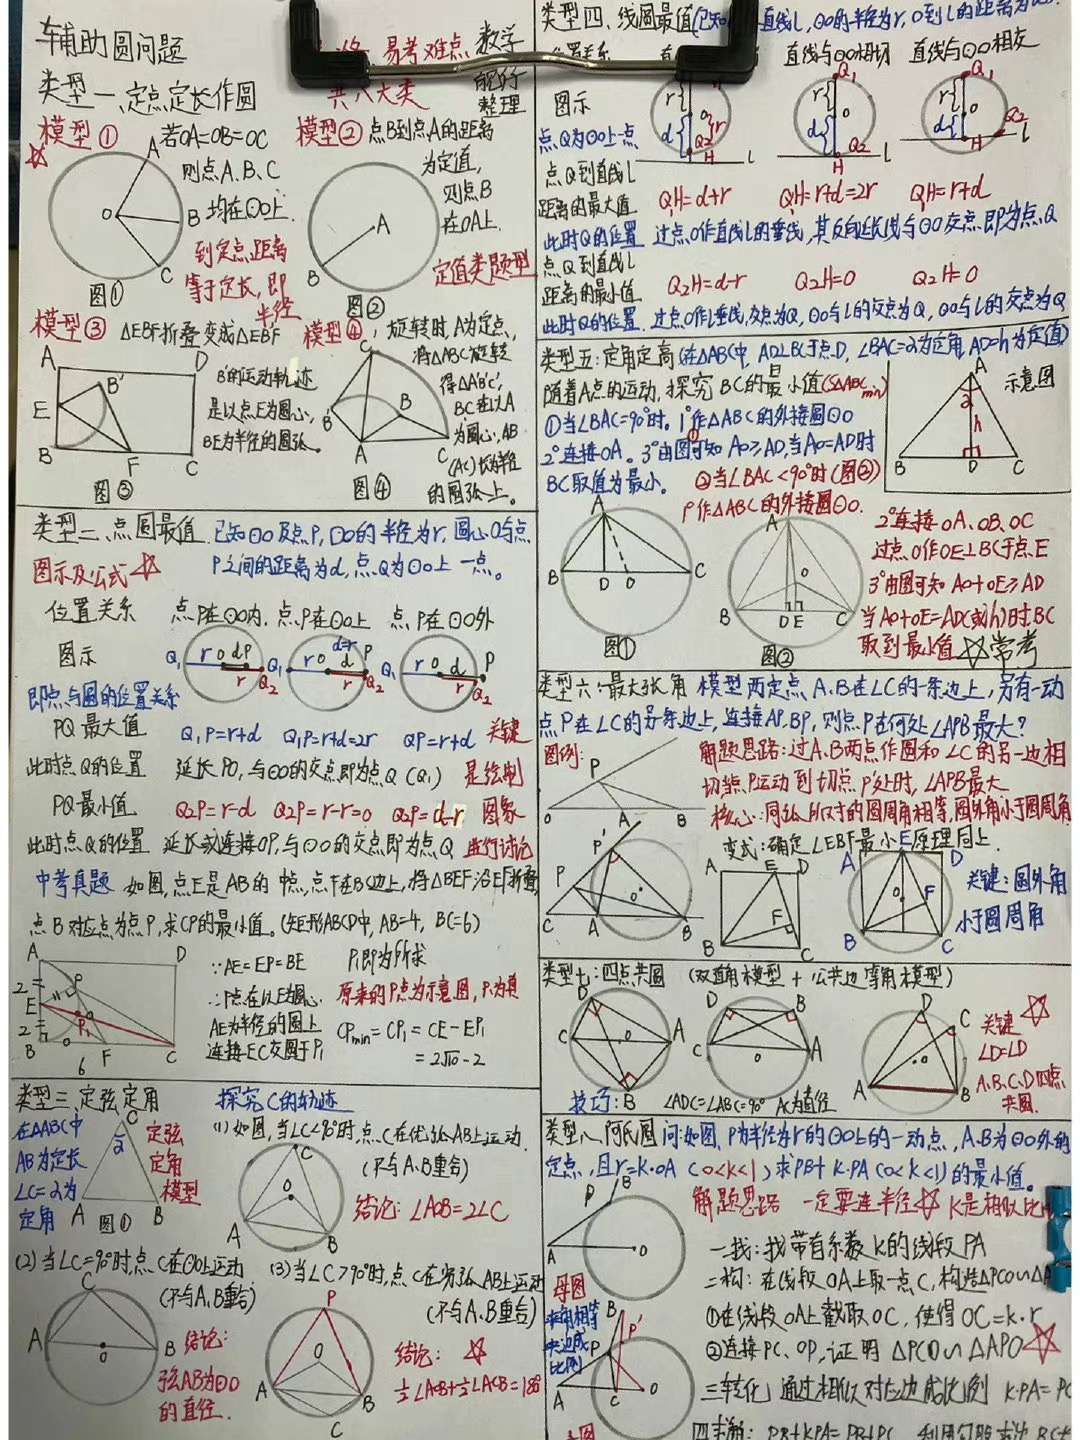 辅助圆问题
易考难点 数学
共八大类
整理
类型一、定点定长作圆
模型① 若OA=OB=OC
则点A、B、C
均在⊙O上
到定点距离
等于定长,即
半径
A
O
B
C
图①
模型② 点B到点A的距离
为定值,
则点B
在⊙A上.
定值类题型
A
B
图②
模型③ △EBF折叠变成△EB'F
B'的运动轨迹
是以点E为圆心,
BE为半径的圆弧。
A D
B'
E
B F C
图③
模型④,旋转时,A为定点,
将△ABC旋转
得△AB'C',
B、C在以A
为圆心,AB
(AC)长为半径
的圆弧上。
C'
B'
B
A C
图④
类型二、点圆最值 已知⊙O及点P,⊙O的半径为r,圆心O与点
P之间的距离为d,点Q为⊙O上一点。
图示及公式☆
位置关系 点P在⊙O内 点P在⊙O上 点P在⊙O外
图示
即点与圆的位置关系
PQ最大值 Q₁P=r+d Q₁P=r+d=2r QP=r+d 关键
此时点Q的位置 延长PO,与⊙O的交点即为点Q(Q₁) 是绘制
PQ最小值 Q₂P=r-d Q₂P=r-r=0 Q₂P=d-r 图象
此时点Q的位置 延长或连接OP,与⊙O的交点即为点Q 进行讨论
中考真题 如图,点E是AB的中点,点F在BC边上,将△BEF沿EF折叠,
点B对应点为点P,求CP的最小值。(矩形ABCD中,AB=4, BC=6)
∵AE=EP=BE P₁即为所求
∴P点在以E为圆心 原来的P点为示意图,P₁为真
AE为半径的圆上 CPmin=CP₁=CE-EP₁
连接EC交圆于P₁ =2√10-2
A D
2
E P
2 P₁
B F C
6
类型三、定弦定角 探究C的轨迹
在△ABC中
AB为定长
∠C=α为
定角
定弦
定角
模型
C
α
A B
图①
(1)如图,当∠C<90°时,点C在优弧AB上运动
(不与A、B重合)
结论:∠AOB=2∠C
C
O
A B
(2)当∠C=90°时,点C在⊙O上运动
(不与A、B重合)
结论:
弦AB为⊙O
的直径.
C
A O B
(3)当∠C>90°时,点C在劣弧AB上运动
(不与A、B重合)
结论:☆
½∠AOB+∠ACB=180°
P
O
A B
C
类型四、线圆最值
直线与⊙O相切 直线与⊙O相交
图示
点Q为⊙O上一点
点Q到直线l
距离的最大值 Q₁H=d+r Q₁H=r+d=2r Q₁H=r+d
此时Q的位置 过点O作直线l的垂线,其反向延长线与⊙O交点即为点Q
点Q到直线l
距离的最小值 Q₂H=d-r Q₂H=0 Q₂H=0
此时Q的位置 过点O作l垂线,交点为Q,⊙O与l的交点为Q,⊙O与l的交点为Q
类型五:定角定高(在△ABC中,AD⊥BC于点D,∠BAC=α为定角,AD=h为定值)
随着A点的运动,探究BC的最小值(S△ABCmin)
①当∠BAC=90°时。1°作△ABC的外接圆⊙O
2°连接OA。3°由图①可知AO≥AD,当AO=AD时
BC取值为最小。 ②当∠BAC<90°时(图②)
1°作△ABC的外接圆⊙O.
2°连接OA、OB、OC
过点O作OE⊥BC于点E
3°由图可知AO+OE≥AD
当AO+OE=AD(或h)时,BC
取到最小值 ☆常考
A 示意图
α
h
B D C
A
B D O C
图①
A
O
B D E C
图②
类型六:最大张角 模型 两定点A、B在∠C的一条边上,另有一动
点P在∠C的另一条边上,连接AP、BP,则点P在何处∠APB最大?
图例: 解题思路:过A、B两点作圆和∠C的另一边相
切,当点P运动到切点P'处时,∠APB最大
核心:同弧所对的圆周角相等,圆外角小于圆周角
变式:确定∠EBF最小 原理同上.
关键:圆外角
小于圆周角
P
O A B
P'
P
C A B
A E D
F
B C
A E D
O F
B C
类型七:四点共圆 (双直角模型+公共边等角模型)
技巧: ∠ADC=∠ABC=90° AC为直径
关键☆
∠D=∠D
A、B、C、D四点
共圆.
D
C O A
B
D B
C O A
D
C
O
A B
类型八、阿氏圆 问:如图,P为半径为r的⊙O上的一动点,A、B为⊙O外的
定点,且r=k·OA(0<k<1),求PB+k·PA(0<k<1)的最小值。
解题思路 一定要连半径☆ K是相似比
一找:找带有系数k的线段PA
二构:在线段OA上取一点C,构造△PCO∽△A
①在线段OA上截取OC,使得OC=k·r
②连接PC、OP,证明△PCO∽△APO☆
三转化 通过相似对应边成比例 K·PA=PC
B
P
A O
母图
夹角相等
夹边成
比例
B
P'
P
A C O